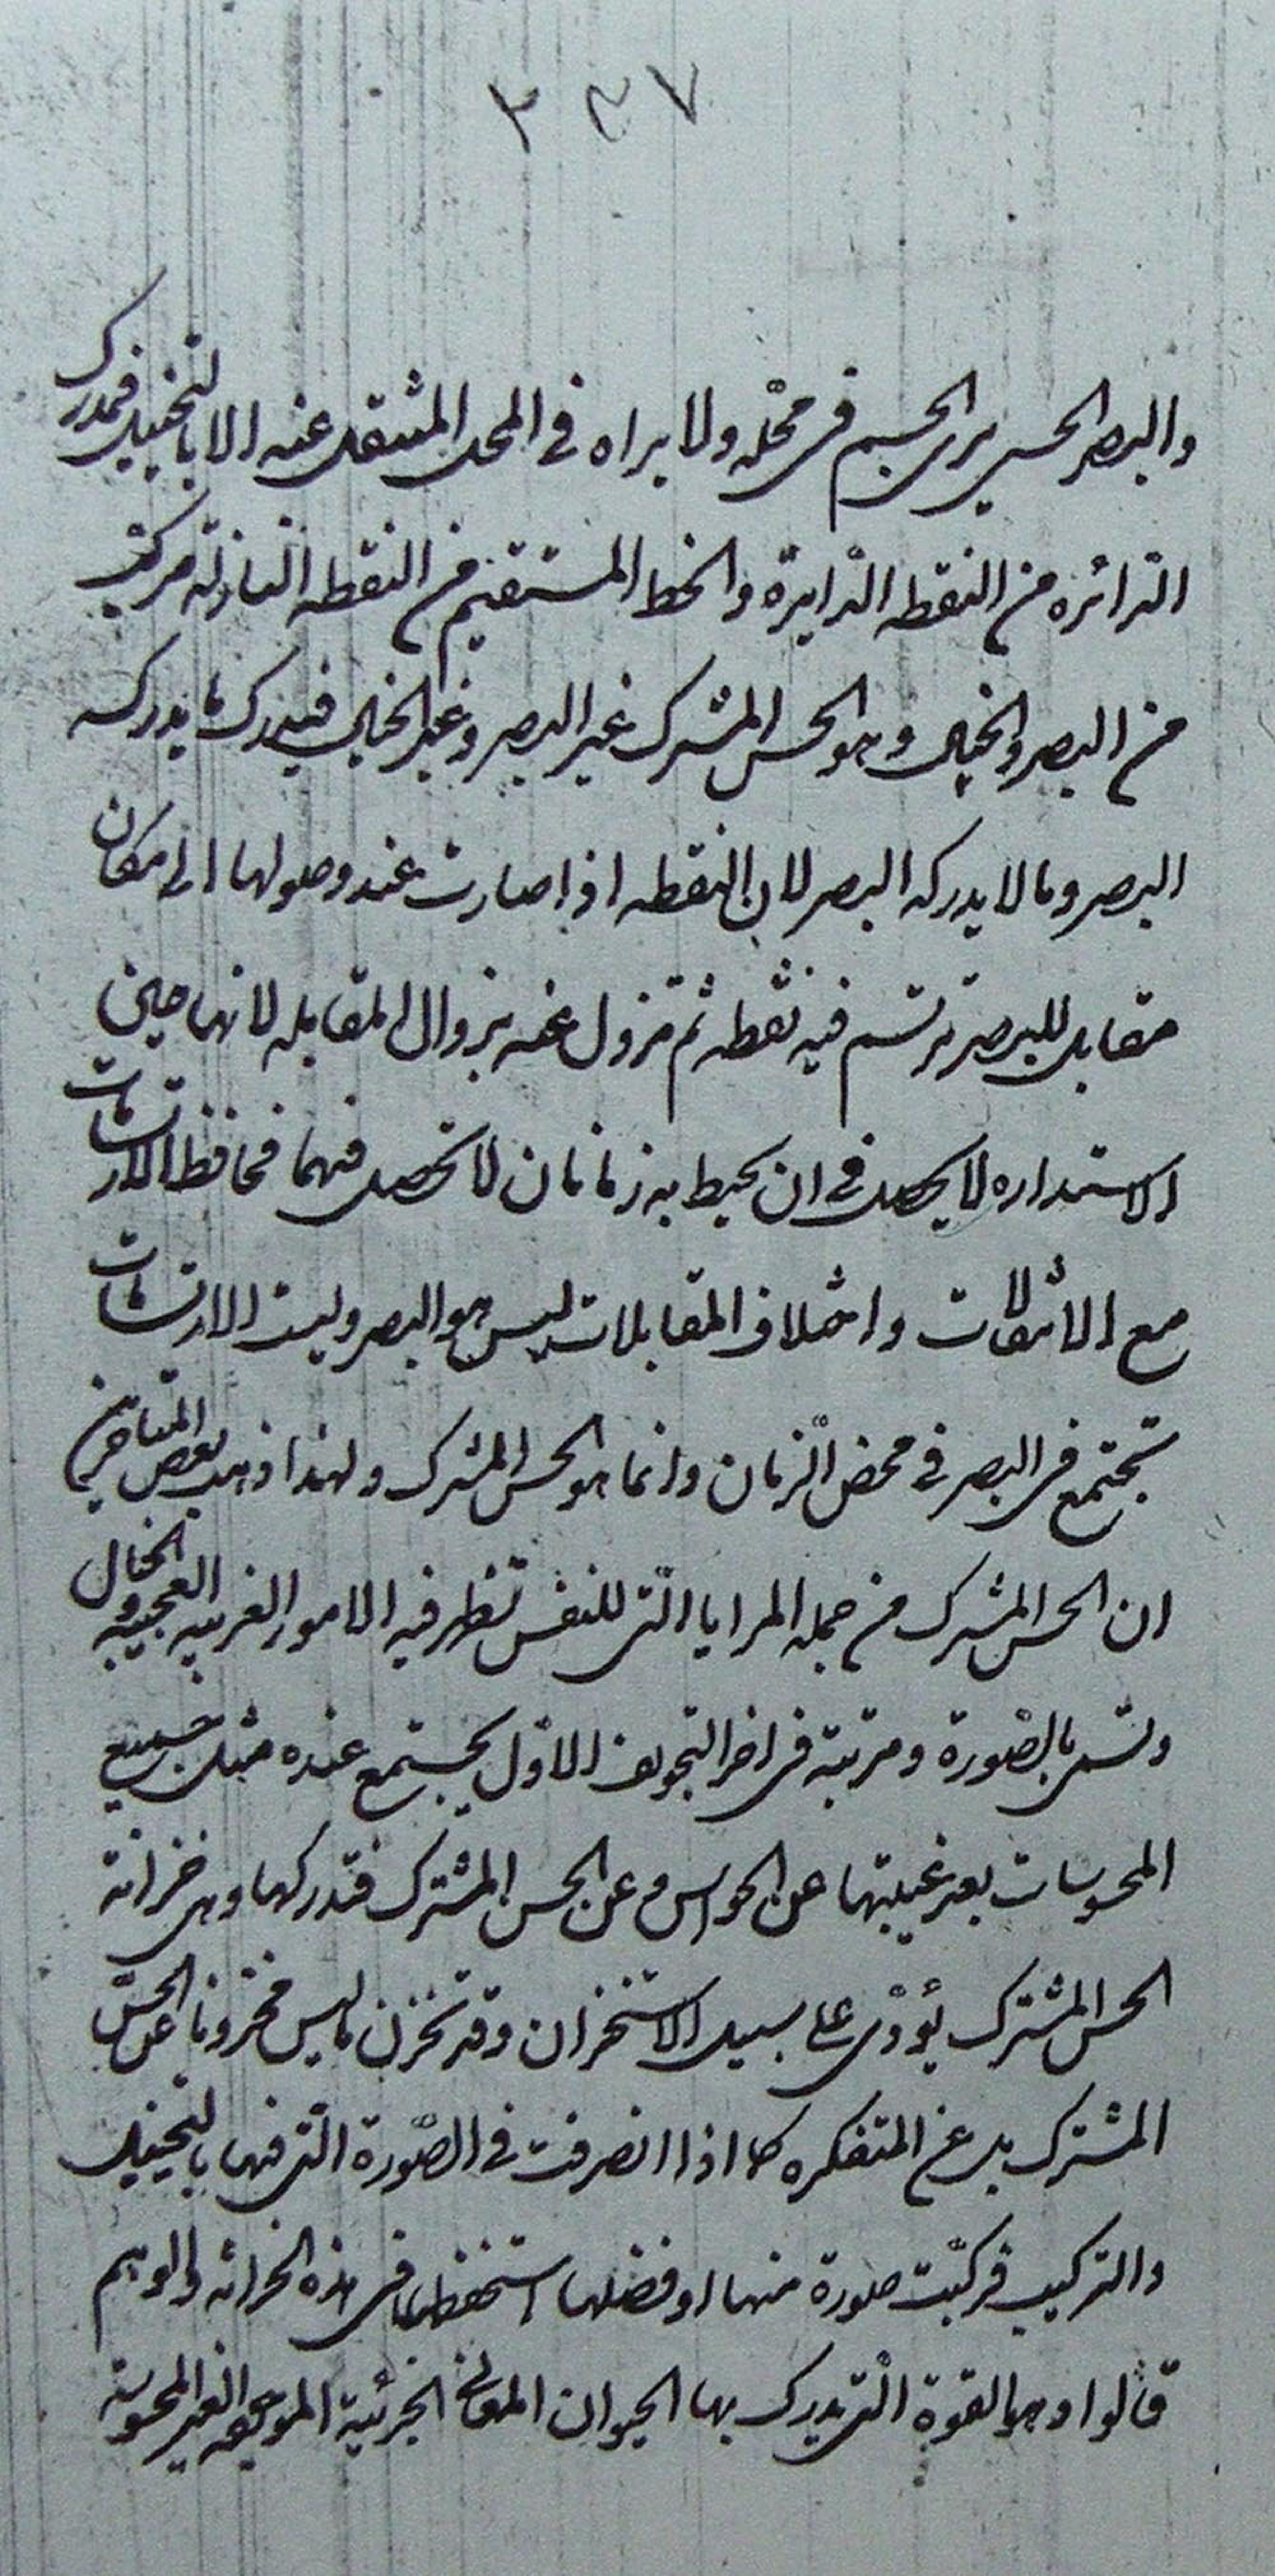 ٢٣٧
والبصر الحسي يرى الجسم في محله ولا يراه في المحل المنتقل عنه الا بالتخييل فمدرك
الدائره من النقطه الدايرة والخط المستقيم من النقطه النازلة مركب
من البصر والخيال وهو الحس المشترك غير البصر وغير الخيال فيدرك ما يدركه
البصر وما لا يدركه البصر لان النقطه اذا صارت عند وصولها الى مكان
مقابل للبصر ترتسم فيه نقطه ثم تزول عنه بزوال المقابله لانها حين
الاستداره لا يحصل في ان يحيط به زمانان لا تحصل فيهما فحافظ الارتسامات
مع الانتقالات واختلاف المقابلات ليس هو البصر وليست الارتسامات
تجتمع في البصر في محض الزمان وانما هو الحس المشترك ولهذا ذهب بعض المتاخرين
ان الحس المشترك من جمله المرايا التى للنفس تظهر فيه الامور الغريبه العجيبه والخيال
وتسمى بالصورة ومرتبة فى اخر التجويف الاول يجتمع عنده مثل جميع
المحسوسات بعد غيبتها عن الحواس وعن الحس المشترك فتدركها وهى خزانة
الحس المشترك يؤدى على سبيل الاستخزان وقد تخزن ما ليس مخزونا عن الحس
المشترك بل عن المتفكره كما اذا انصرفت فى الصورة التى فيها بالتخييل
والتركيب فركبت صورة منها او فصلها استحفظها فى هذه الخزانه والوهم
قالوا وهو القوة التى يدرك بها الحيوان المعانى الجزئية الموجوده الغير المحسوسة